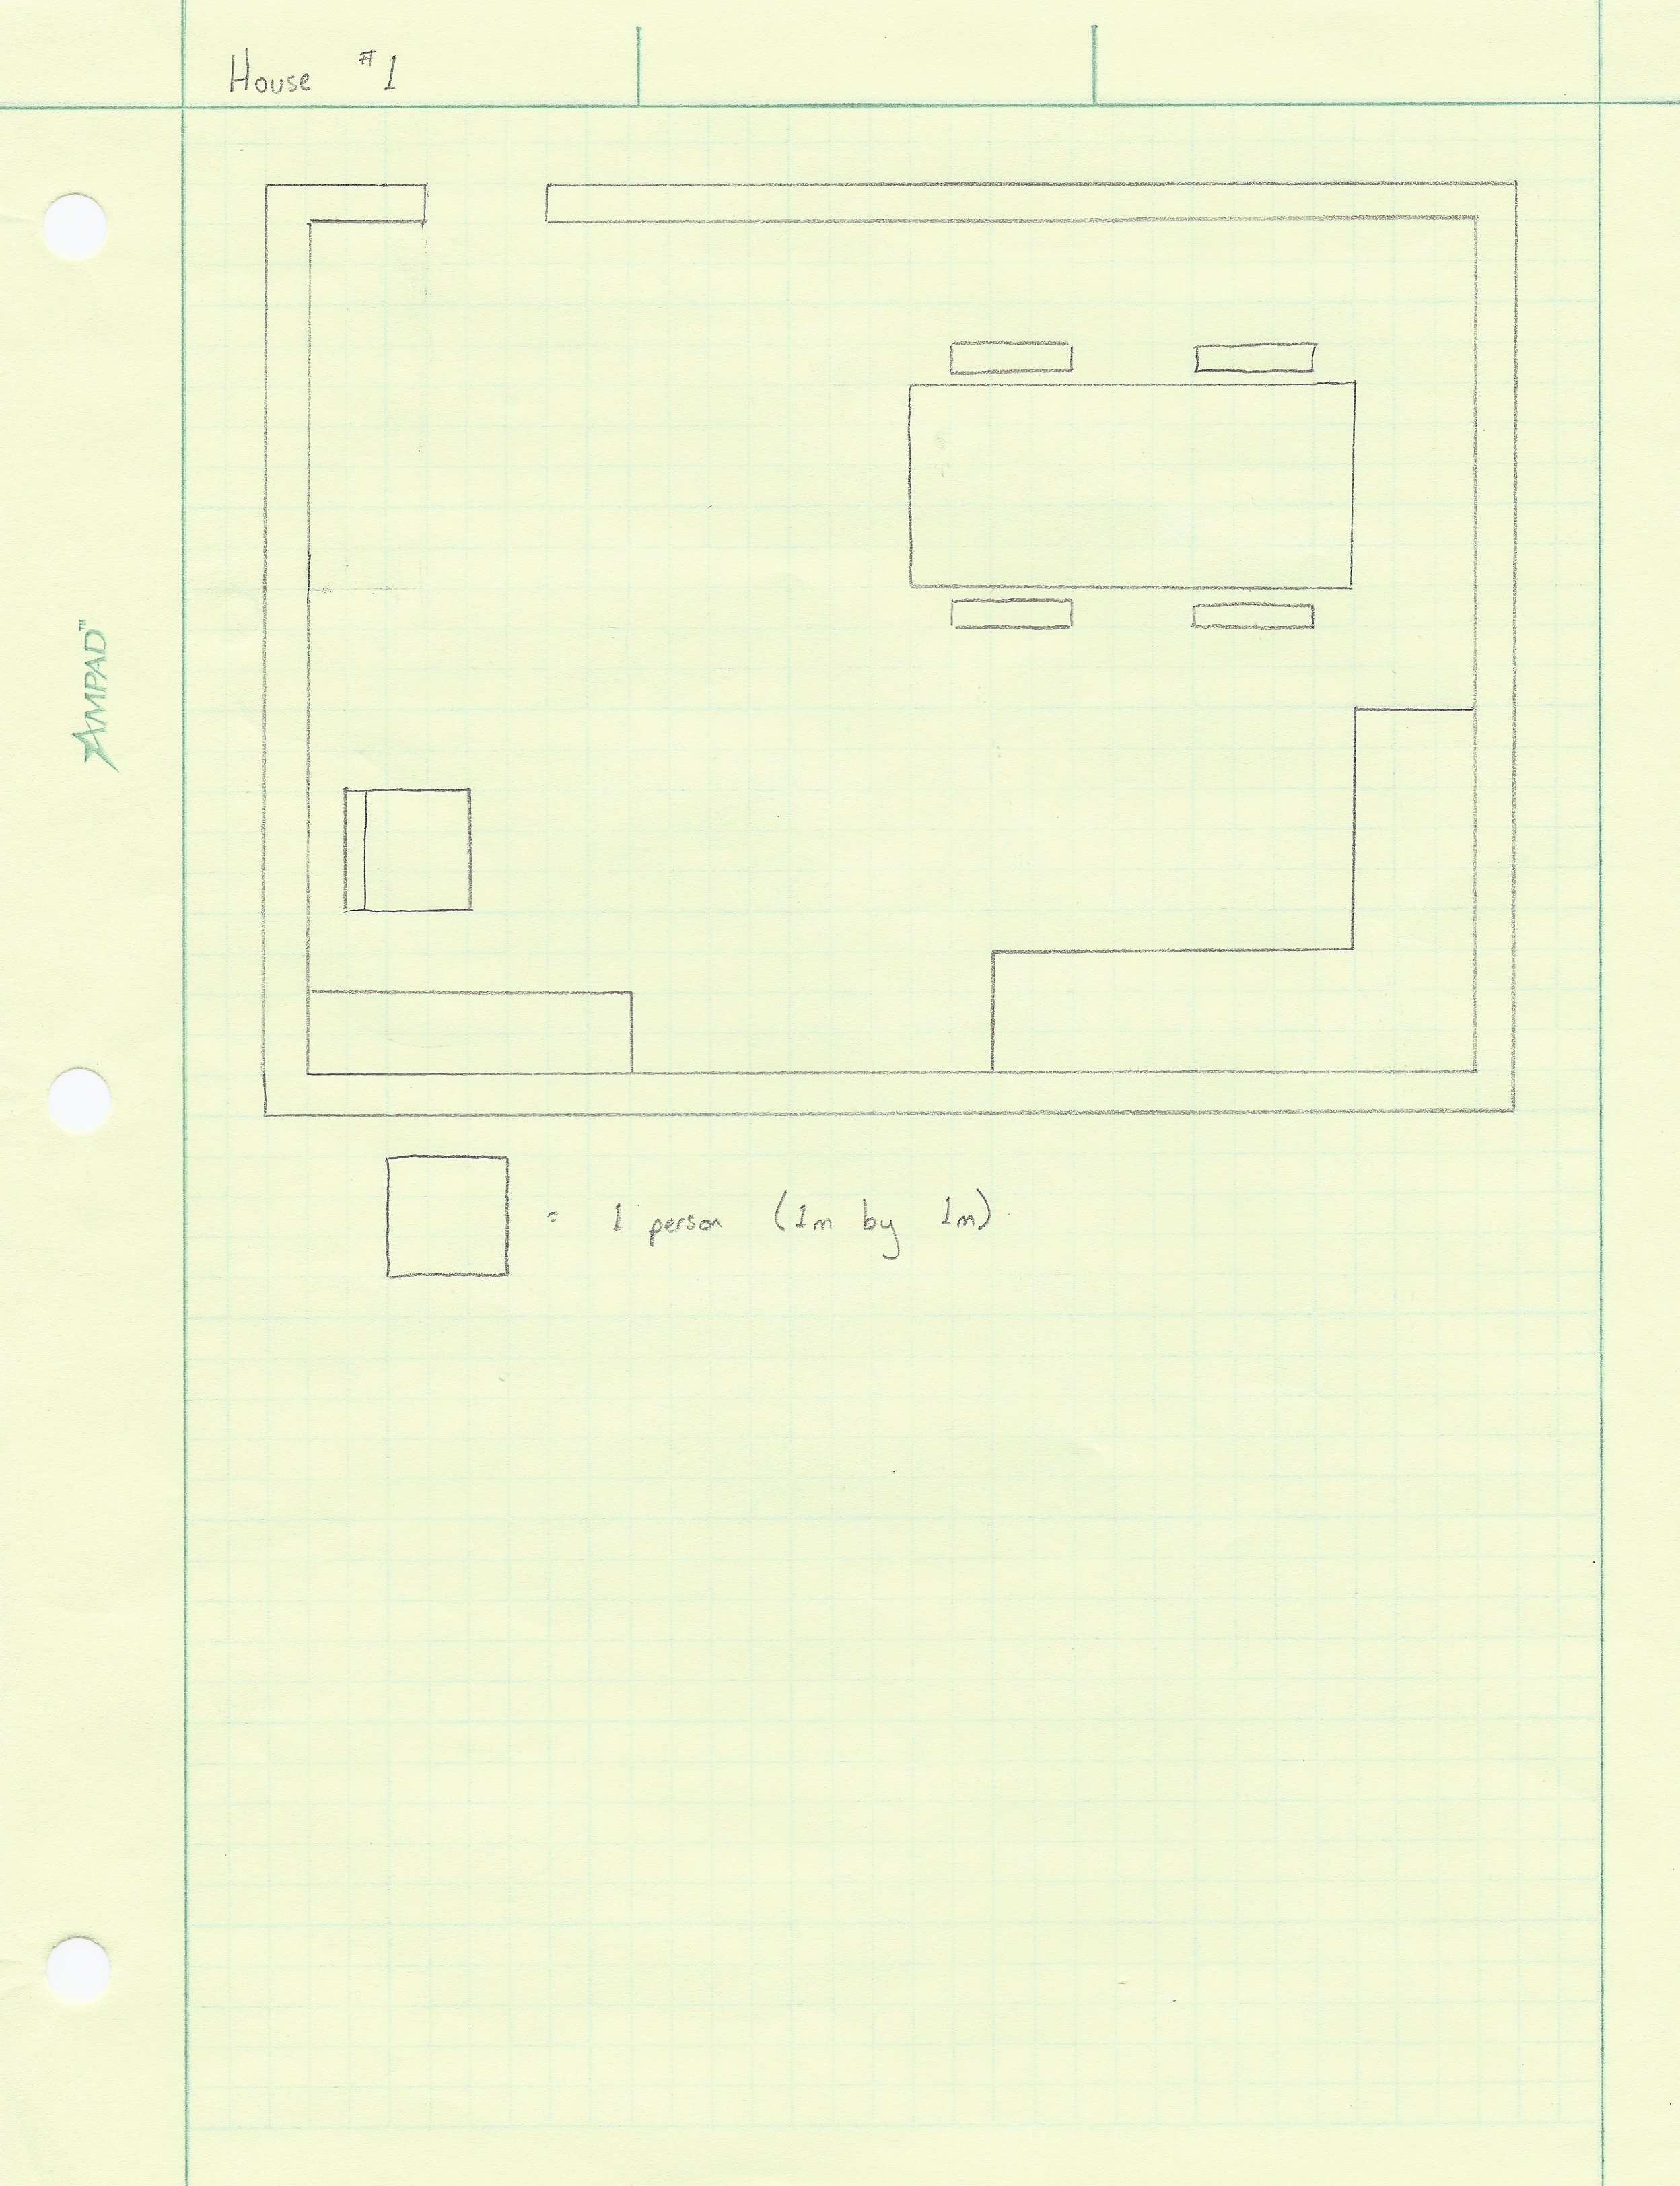 House #1
AMPAD™
= 1 person (1m by 1m)